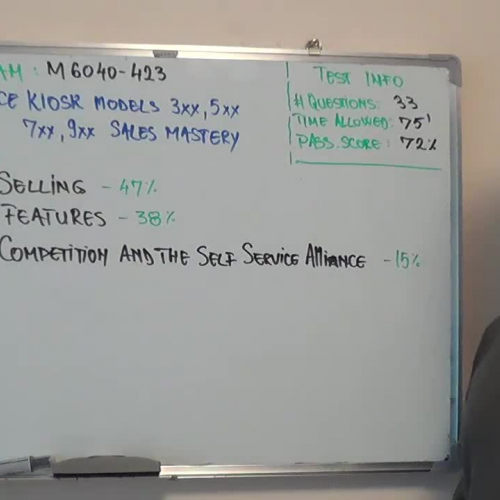 AM: M6040-423
CE KIOSK MODELS 3xx, 5xx
7xx, 9xx SALES MASTERY
TEST INFO
# QUESTIONS: 33
TIME ALLOWED: 75'
PASS. SCORE: 72%
SELLING - 47%
FEATURES - 38%
COMPETITION AND THE SELF SERVICE ALLIANCE - 15%